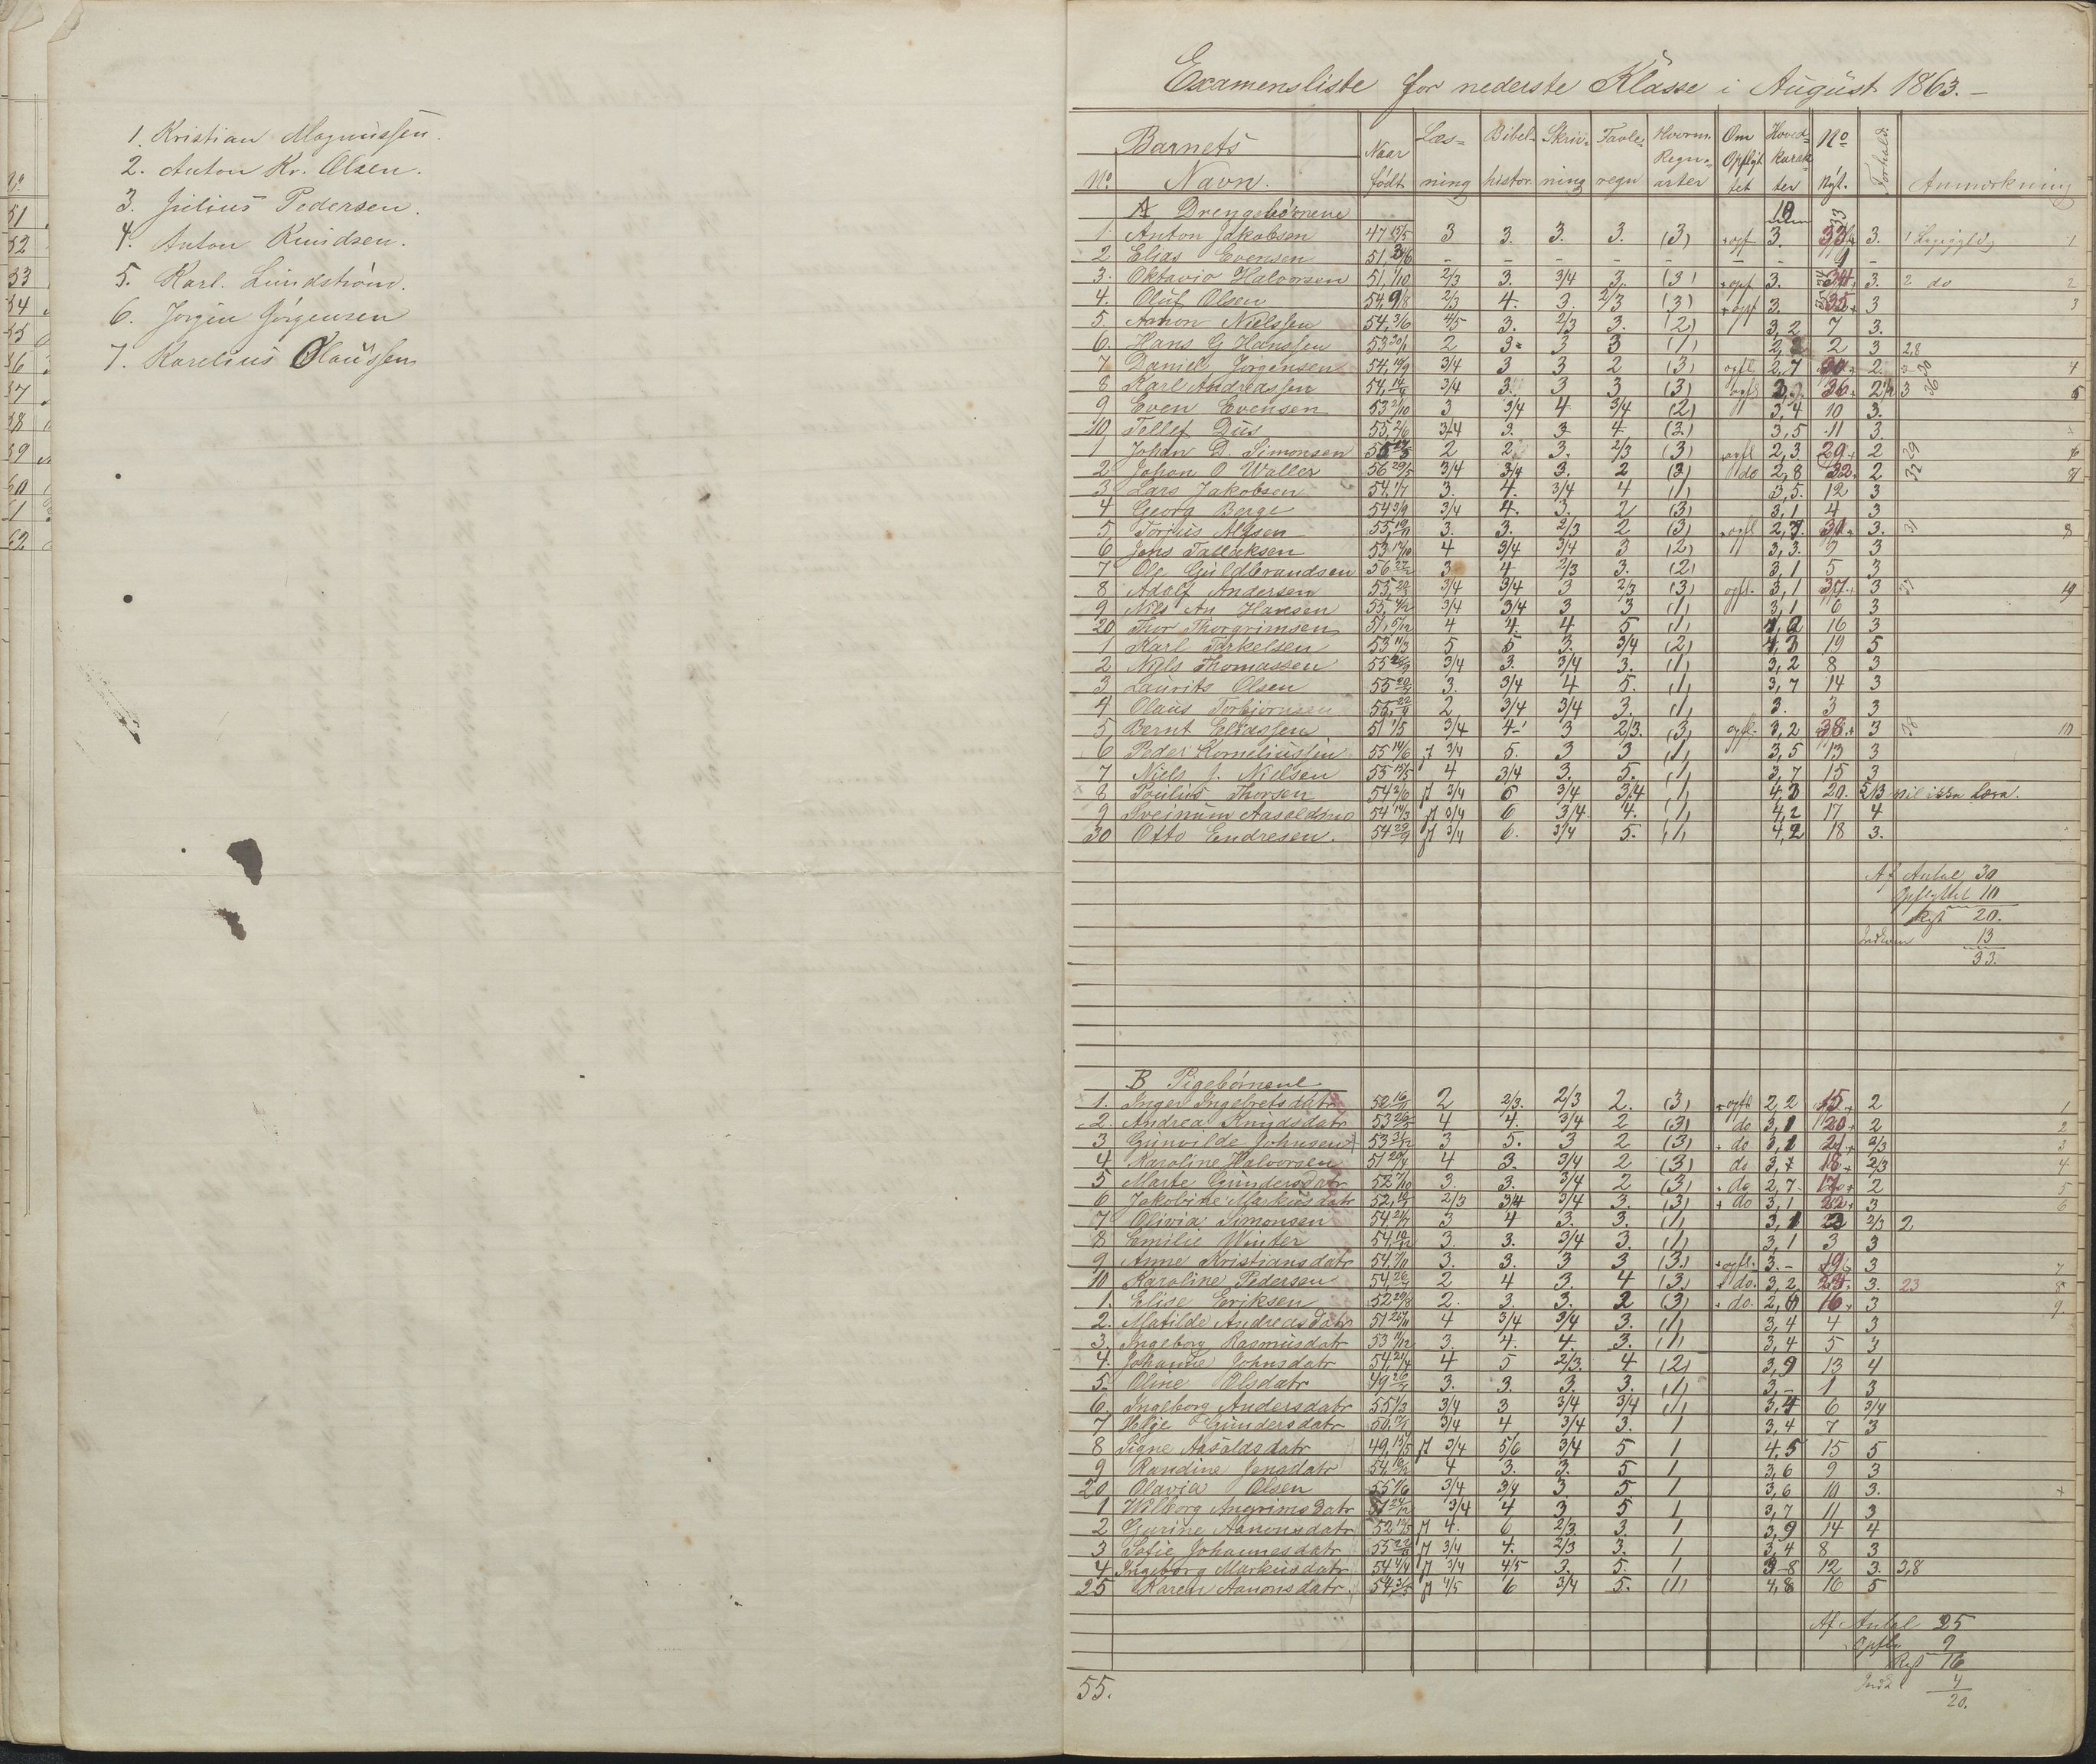 1. Kristian Magnussen.
2. Anton Kr. Olsen.
3. Julius Pedersen.
4. Anton Knudsen.
5. Karl. Lundström.
6. Jörgen Jörgensen
7. Karelius Olaussen
Examensliste for nederste Klasse i August 1863.-
No. Barnets Navn. Naar født Læs=ning Bibel=histor. Skriv=ning Tavle=regn Hvorm. Regn=arter Om Opflyttet Hoved=karakter No Nyt. Forhold. Anmerkning
A Drengebørnene
1. Anton Jakobsen 47 15/5 3 3. 3. 3. (3) opf 3. 33 3.
2 Elias Evensen 51, - - - - - - -
3. Oktavio Halvorsen 51, 1/10 2/3 3. 3/4 3. (3) opf 3. 34 3. 2 do 2
4. Oluf Olsen 54, 9/8 2/3 4. 3. 2/3 (3) opf 3. 35 3 3
5. Aanon Nielssen 54, 3/6 4/5 3. 2/3 3. (2) 3,2 7 3.
6. Hans G Hanssen 53 30/1 2 3. 3 3 (1) 2 3 2,8
7 Daniel Jörgensen 54, 19/9 3/4 3 3 2 (3) opfl 2,7 30 2. 4
8 Karl Andreassen 54, 3/4 3. 3 3 (3) opfl 36 3 36 5
9 Even Evensen 53 2/10 3 3/4 4 3/4 (2) 3,4 10 3.
10 Tellef Dus 55 2/6 3/4 3. 3 4 (2) 3,5 11 3.
1 Johan D. Simonsen 2 2 3. 2/3 (3) opfl 2,3 29 2 29
2 Johan O Waller 56 29/5 3/4 3/4 3. 2 (3) do 2,8 32 2 32
3 Lars Jakobsen 54, 1/7 3. 4. 3/4 4 (1) 3,5. 12 3
4 Georg Berge 54 3/9 3/4 4. 3. 2 (3) 3,1 4 3
5 Torjus Alfsen 55, 3. 3. 2/3 2 (3) opfl 31 3. 31 8
6 Jens Tallaksen 53 4 3/4 3/4 3 (2) 3,3. 9 3
7 Ole Guldbrandsen 56 3 4 2/3 3. (2) 3,1 5 3
8 Adolf Andersen 55, 3/4 3/4 3 2/3 (3) opfl. 3,1 37 3 37
9 Nils An Hansen 55. 3/4 3/4 3 3 (1) 3,1 6 3
20 Thor Thorgrimsen 51, 4 4. 4 5 (1) 4,2 16 3
1 Karl Torkelsen 53 5 5 3. 3/4 (2) 4,3 19 5
2 Niels Thomassen 55 3/4 3. 3/4 3. (1) 3,2 8 3
3 Laurits Olsen 55 3. 3/4 4 5. (1) 3,7 14 3
4 Olaus Torbjornsen 55, 2 3/4 3/4 3. (1) 3. 3 3
5 Bernt Eliassen 51 1/5 3/4 4 3 2/3. (3) opfl. 3,2 38 3 38 10
6 Peder Korneliussen 55 3/4 5. 3 3 (1) 3,5 13 3
7 Niels J. Nielsen 55 4 3/4 3. 5. (1) 3,7 15 3
8 Poulius Thorsen 54 2/6 3/4 6 3/4 3/4 (1) 4,3 20. vil ikke læra.
9 Sveinum Aasoldsen 54 3/4 6 3/4 4. (1) 4,2 17 4
30 Otto Endresen. 54 3/4 6. 3/4 5. (1) 4,2 18 3.
Af Antal 30
Opflyttet 10
Rest 20.
Indkom 13
33.
B Pigebørnene
1. Inger Ingebretsdatr 52 2 2/3. 2/3 2. (3) opfl 2,2 15 2 1
2. Andrea Knudsdatr 53 4 4. 3/4 2 (3) do 3,1 20 2 2
3 Gunvilde Johnsen 53 3 5. 3 2 (3) do 21 2/3 3
4 Karoline Halvorsen 51 4 3. 3/4 2 (3) do 18 2/3 4
5 Marte Gundersdatr 52 3. 3. 3/4 2 (3) do 2,7 17 2 5
6 Jakobine Markusdatr 52, 2/3 3/4 3/4 3. (3) do 3,1 22 3 6
7 Olivia Simonsen 54, 3 4 3. 3. (1) 2/3 2
8 Emilie Winter 54, 3. 3. 3/4 3. (1) 3,1 3 3
9 Anne Kristiansdatr 54, 3. 3. 3 3 (3) opfl. 3.- 19 3 7
10 Karoline Pedersen 54, 2 4 3. 4 (3) do. 3,2 23 3. 23 8
1. Elise Eriksen 52 2. 3. 3. 2 (3) do. 16 3 9
2. Matilde Andreasdatr 51 4 3/4 3/4 3. (1) 3,4 4 3
3. Ingeborg Rasmusdatr 53 3. 4. 4. 3. (1) 3,4 5 3
4. Johanne Johnsdatr 54, 4 5 2/3. 4 (2) 3,9 13 4
5. Oline Olsdatr 49 3. 3. 3. 3. (1) 3,- 1 3
6. Ingeborg Andersdatr 55 1/3 3/4 3 3/4 3/4 (1) 3,4 6 3/4
7 Helje Gundersdatr 3/4 4 3/4 3. 1 3,4 7 3
8 Signe Aasoldsdatr 49, 3/4 5/6 3/4 5 1 4,5 15 5
9 Randine Jensdatr 54, 4 3. 3. 5 1 3,6 9 3
20 Olavia Olsen 55 3/4 3/4 3 5 1 3,6 10 3.
1 Wilborg Angrimsdatr 3/4 4 3 5 1 3,7 11 3
2 Gurine Aanonsdatr 52 4. 6 2/3 3. 1 3,9 14 4
3 Sofie Johannesdatr 55 3/4 4. 2/3 3. 1 3,4 8 3
4 Ingeborg Markusdatr 54 3/4 4/5 3. 5. 1 12 3. 3,8
25 Karen Aanonsdatr. 54, 4/5 6 3/4 5. (1) 4,8 16 5
Af Antal 25
Opfl 9
Rest 16
Indk 4
20.
55.